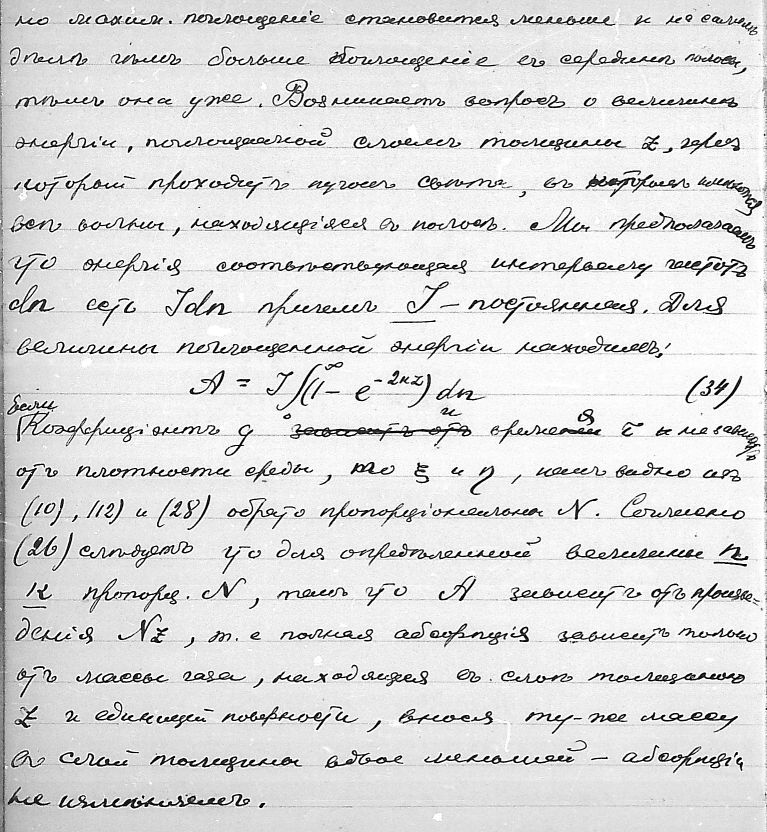 но махим. поглощеніе становится меньше и на самомъ
дѣлѣ чѣмъ больше поглощеніе въ серединѣ полосы,
тѣмъ она уже. Возникаетъ вопросъ о величинѣ
энергіи, поглощаемой слоемъ толщины z, черезъ
который проходитъ пучокъ свѣта, въ которомъ имѣются
всѣ волны, находящіяся въ полосѣ. Мы предполагаемъ
что энергія соотвѣтствующая интервалу частотъ
dn есть Jdn причемъ J – постоянная. Для
величины поглощенной энергіи находимъ:
A = J∫(1 – e^{-2kz}) dn (34)
Если
Коэффиціентъ g зависитъ отъ времени τ и не зависятъ
отъ плотности среды, то ξ и η, какъ видно изъ
(10), (12) и (28) обратно пропорціональны N. Согласно
(26) слѣдуетъ что для опредѣленной величины n
k пропорц. N, такъ что A зависитъ отъ произве-
денія Nz, т. е полная абсорпція зависитъ только
отъ массы газа, находящейся въ слоѣ толщиною
z и единицей поверхности, внося ту-же массу
въ слой толщины вдвое меньшей – абсорпціи
не измѣняемъ.